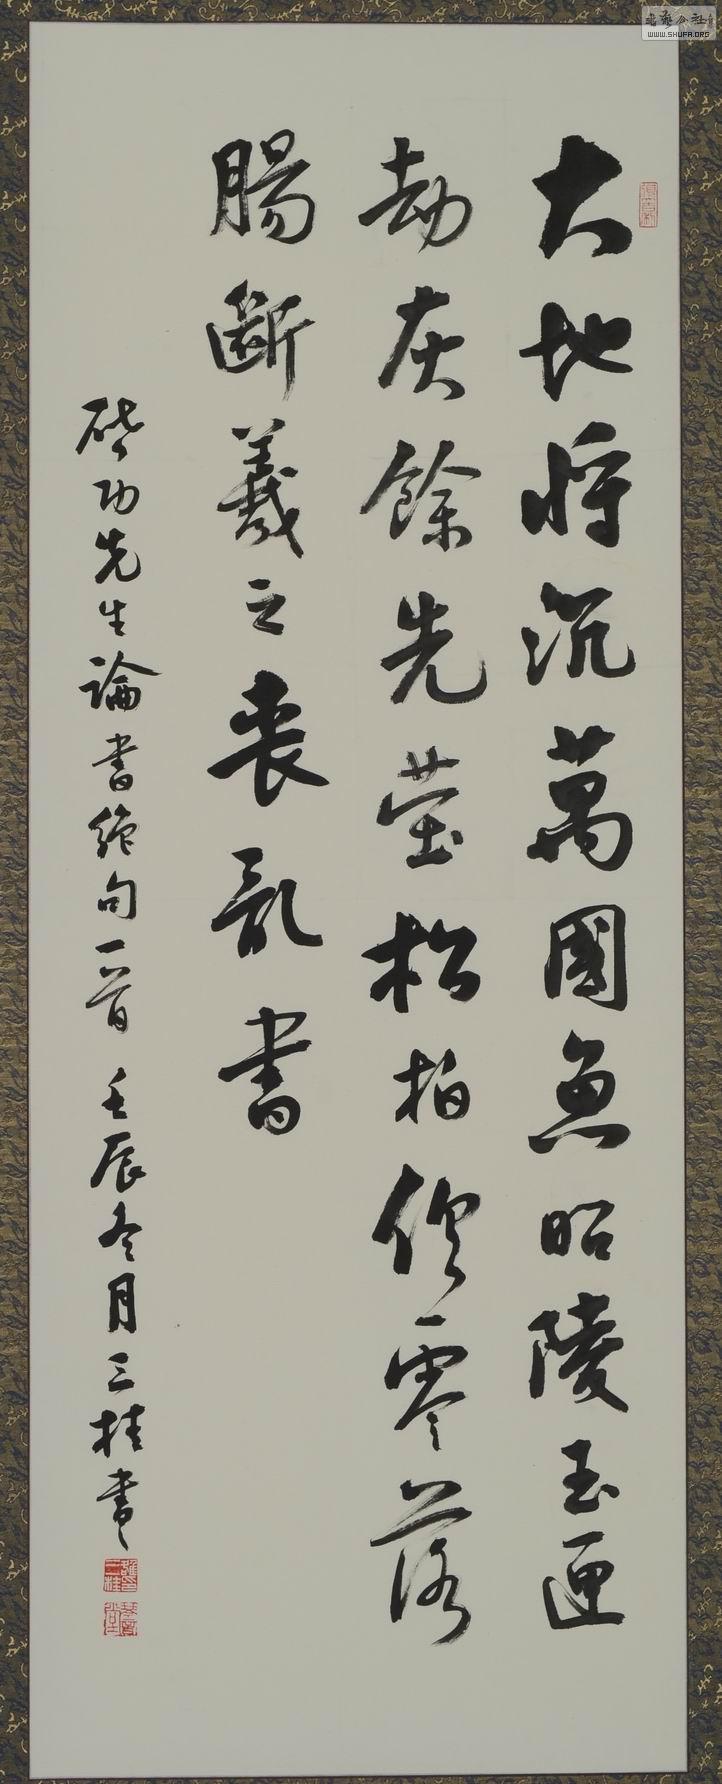 大地將沉萬國魚昭陵玉匣
劫灰餘先塋松柏俱零落
腸斷羲之喪亂書
啓功先生論書絕句一首 壬辰冬月三桂書
書藝公社
WWW.SHUFA.ORG